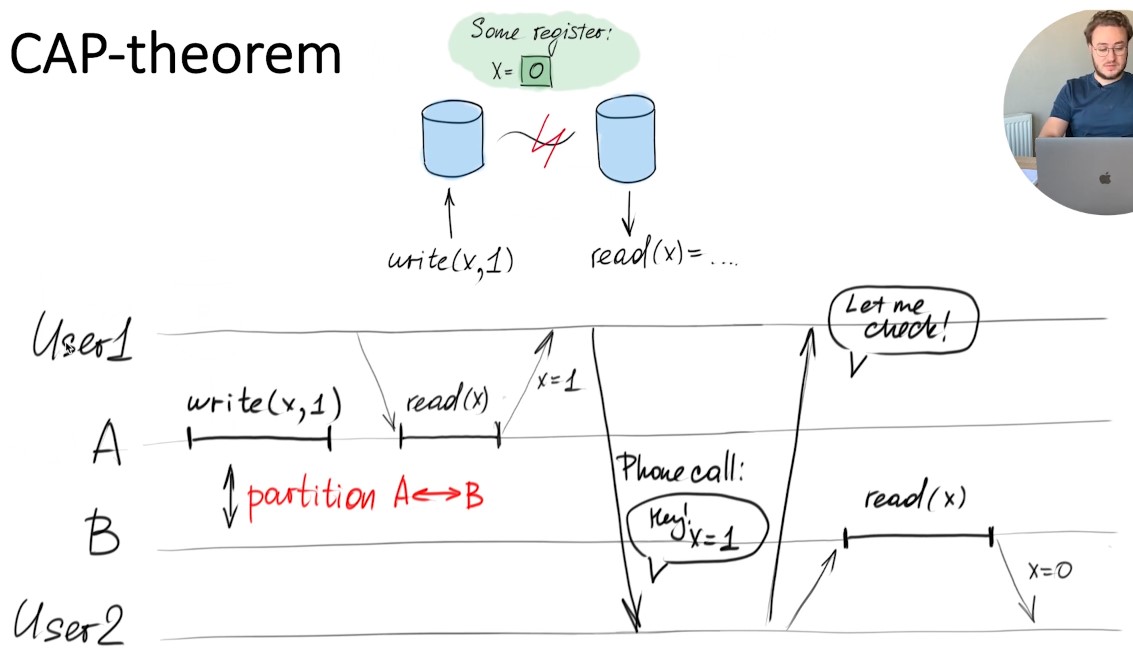 CAP-theorem
Some register:
x= 0
write(x,1)
read(x)=....
User1
Let me
check!
write(x,1)
read(x)
x=1
A
partition A↔B
Phone call:
Hey!
x=1
read(x)
B
x=0
User2